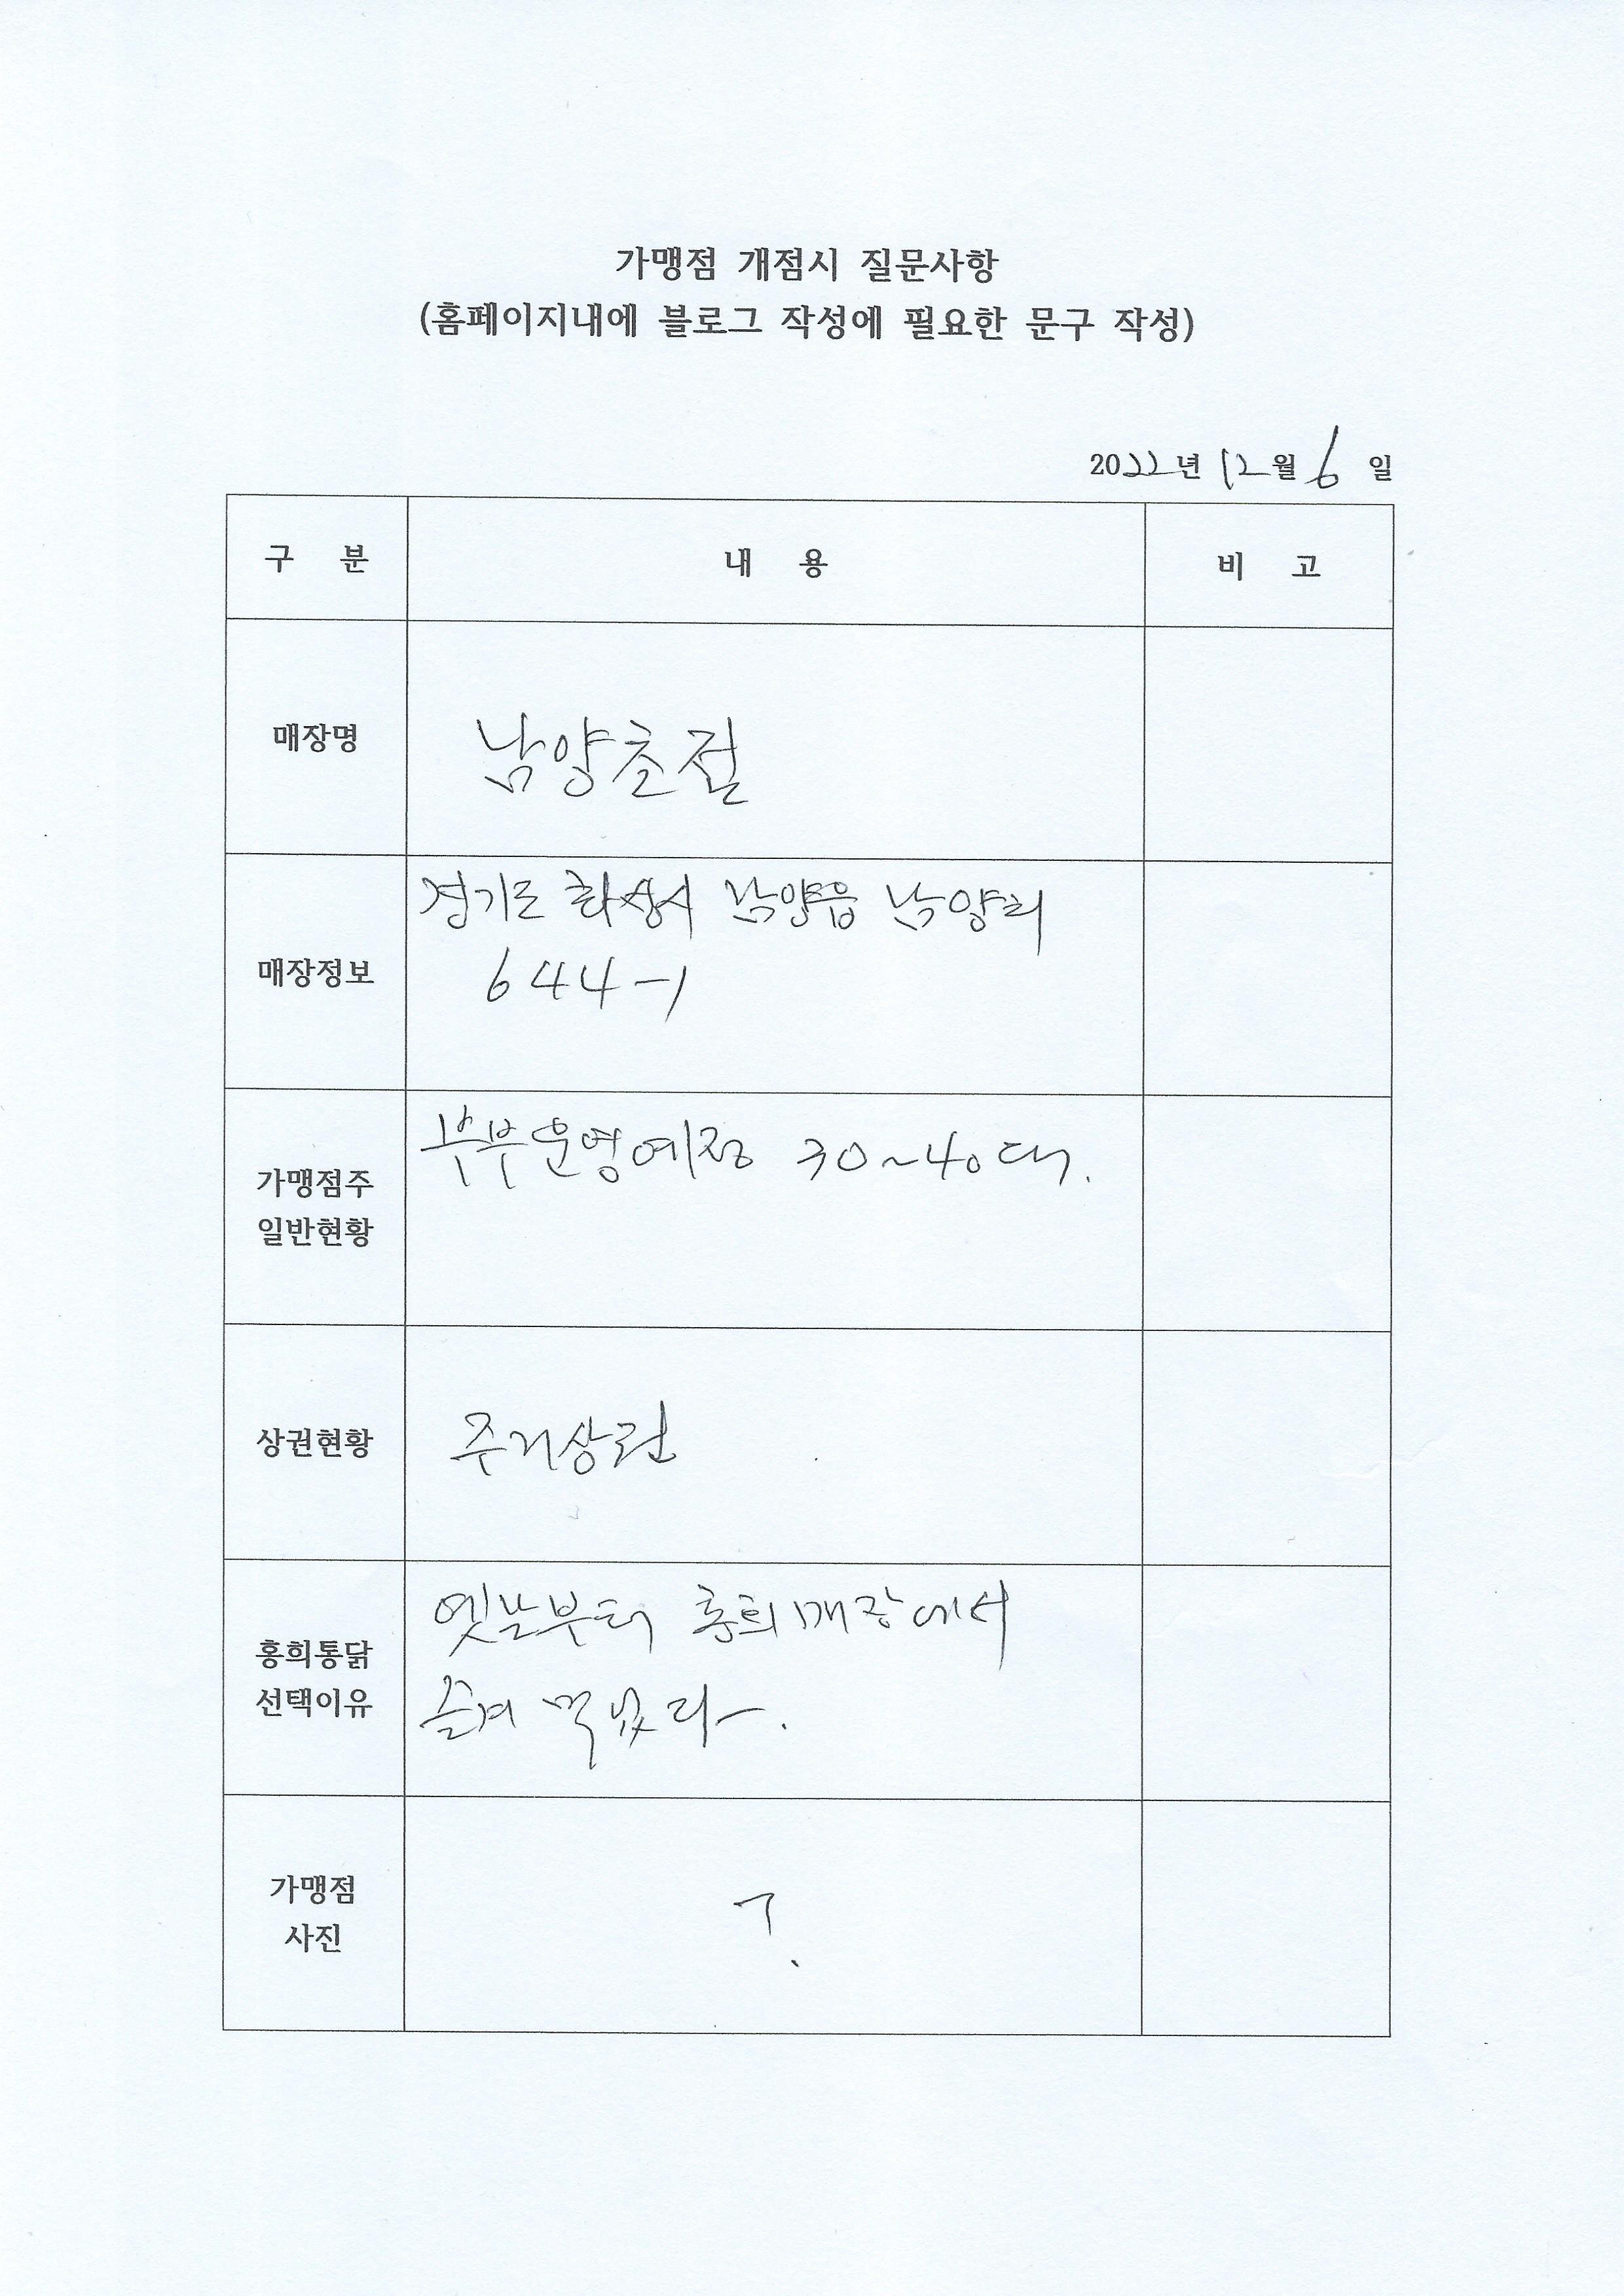 가맹점 개점시 질문사항
(홈페이지내에 블로그 작성에 필요한 문구 작성)
2022년 12월 6일
구 분 내 용 비 고
매장명 남양초점
매장정보 경기도 화성시 남양읍 남양리
644-1
가맹점주
일반현황
부부운영예정 30~40대.
상권현황 주거상권
홍희통닭
선택이유
옛날부터 홍희매장에서
즐겨 먹었다.
가맹점
사진
?